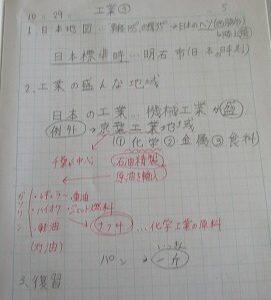 10.29. 工業④ 5
1.日本地図…
日本標準時…明石市(日本の時刻)
2.工業の盛んな地域
日本の工業…機械工業が盛
例外→京葉工業地域
(①化学②金属③食料)
千葉が中心 石油精製
原油を輸入
・レギュラー・重油
・ハイオク・ジェット燃料
・軽油 ナフサ…化学工業の原料
(灯油)
3.復習